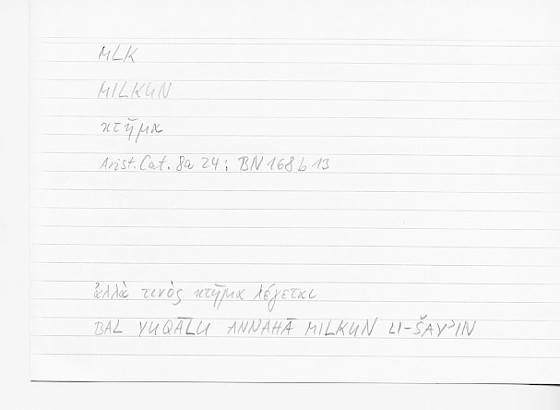 MLK
MILKUN
κτῆμα
Arist. Cat. 8a 24; BN 168b 13
ἀλλὰ τινὸς κτῆμα λέγεται
BAL YUQĀLU ANNAHĀ MILKUN LI-ŠAYʾIN